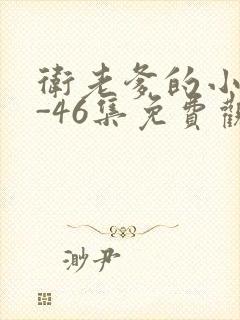 衛老爹的小
-46集免費觀
渺尹